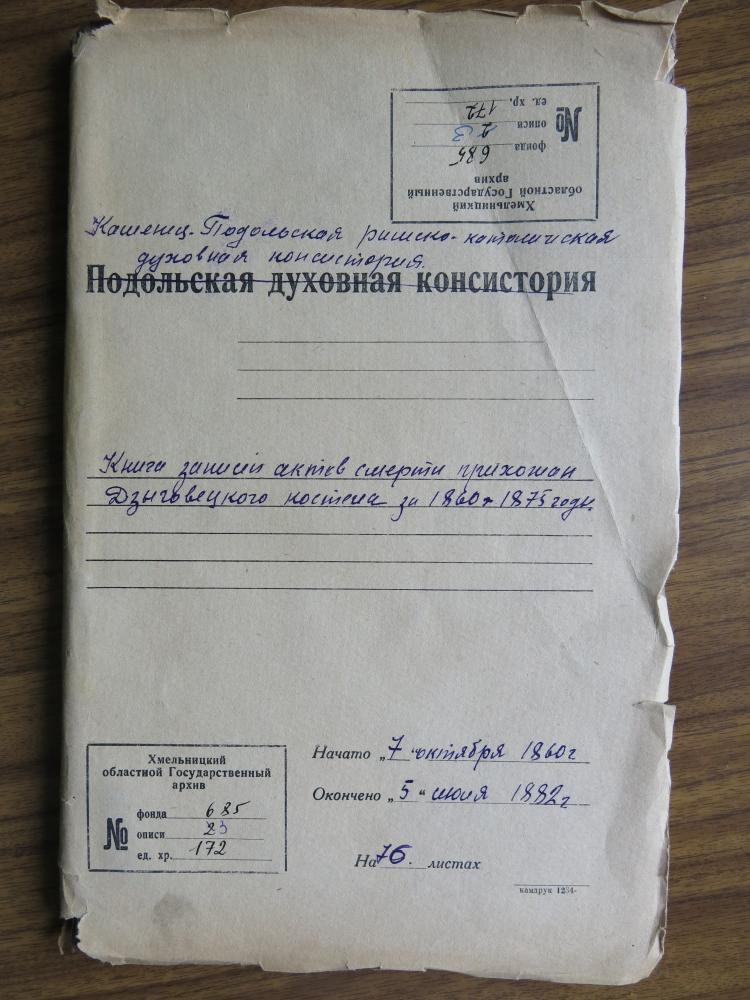 Хмельницкий
областной Государственный
архив
№
фонда 685
описи 23
ед. хр. 172
Каменец-Подольская римско-католическая
духовная консистория.
Подольская духовная консистория
Книга записей актов смерти прихожан
Дзыговецкого костела за 1860-1875 годы.
Начато „7“ октября 1860 г
Окончено „5“ июля 1882 г
Хмельницкий
областной Государственный
архив
№
фонда 685
описи 23
ед. хр. 172
На 76. листах
камдрук 1234-